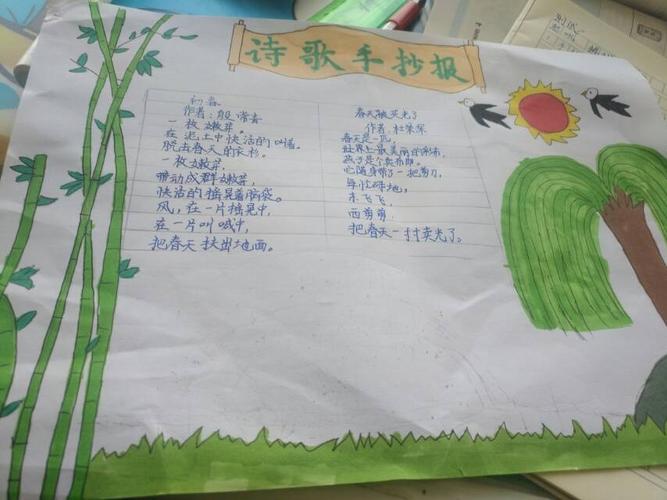 诗歌手抄报
初春
作者:殷常青
一枚嫩芽。
在泥土中快活的叫嚷。
脱去春天的衣衫。
一枚嫩芽,
带动成群嫩芽,
快活的摇晃着脑袋。
风,在一片摇晃中,
在一片叫喊中,
把春天扶出地面。
春天被卖光了
作者:杜荣琛
春天是一匹,
世界上最美丽的彩布,
燕子是个卖布郎。
它随身带了一把剪刀,
每忙碌地,
东飞飞,
西剪剪,
把春天一寸寸卖光了。